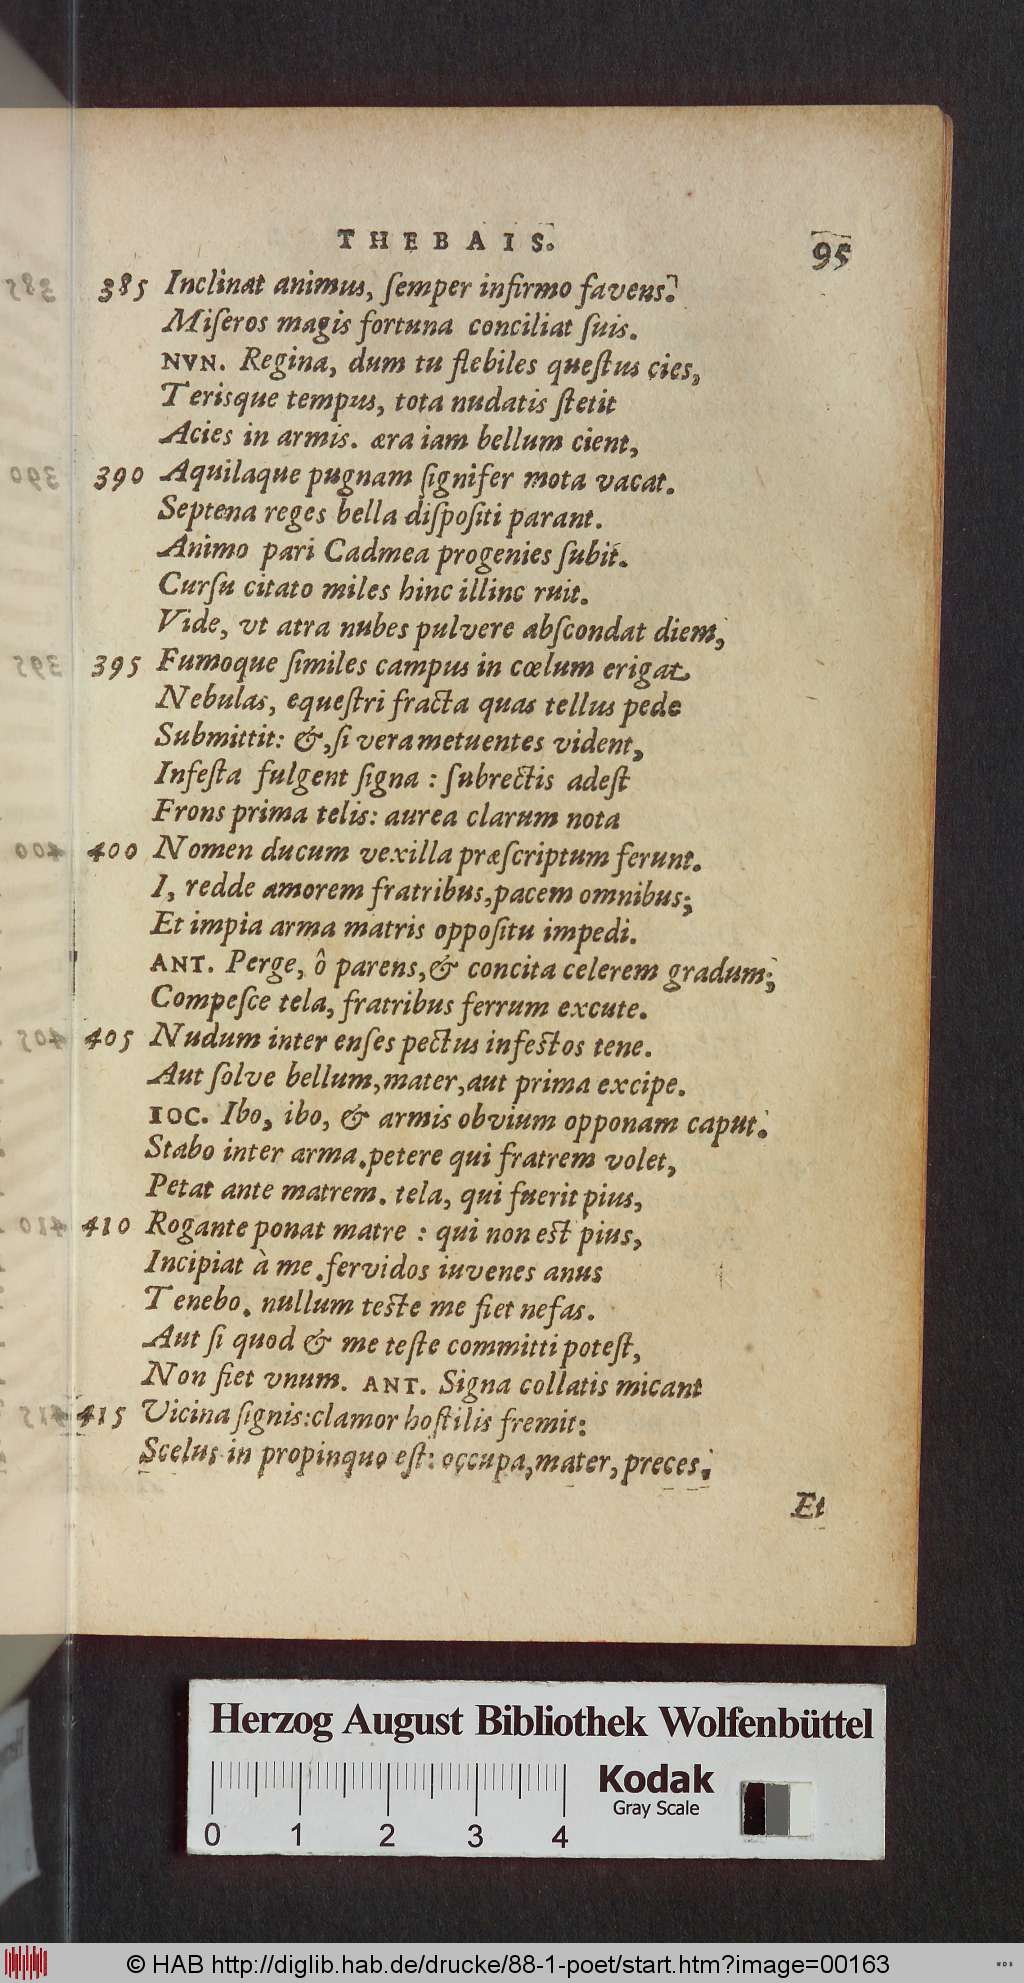 THEBAIS.
95
385 Inclinat animus, ſemper infirmo favens.
Miſeros magis fortuna conciliat ſuis.
NVN. Regina, dum tu flebiles queſtus cies,
Terisque tempus, tota nudatis ſtetit
Acies in armis. æra iam bellum cient,
390 Aquilaque pugnam ſignifer mota vacat.
Septena reges bella diſpoſiti parant.
Animo pari Cadmea progenies ſubit.
Curſu citato miles hinc illinc ruit.
Vide, vt atra nubes pulvere abſcondat diem,
395 Fumoque ſimiles campus in cœlum erigat
Nebulas, equeſtri fracta quas tellus pede
Submittit: &, ſi vera metuentes vident,
Infeſta fulgent ſigna : ſubrectis adeſt
Frons prima telis: aurea clarum nota
400 Nomen ducum vexilla præſcriptum ferunt.
I, redde amorem fratribus, pacem omnibus;
Et impia arma matris oppoſitu impedi.
ANT. Perge, ô parens, & concita celerem gradum;
Compeſce tela, fratribus ferrum excute.
405 Nudum inter enſes pectus infeſtos tene.
Aut ſolve bellum, mater, aut prima excipe.
IOC. Ibo, ibo, & armis obvium opponam caput.
Stabo inter arma. petere qui fratrem volet,
Petat ante matrem. tela, qui fuerit pius,
410 Rogante ponat matre : qui non eſt pius,
Incipiat à me. fervidos iuvenes anus
Tenebo. nullum teſte me fiet nefas.
Aut ſi quod & me teſte committi poteſt,
Non fiet vnum. ANT. Signa collatis micant
415 Vicina ſignis: clamor hoſtilis fremit:
Scelus in propinquo eſt: occupa, mater, preces.
Et
Herzog August Bibliothek Wolfenbüttel
Kodak
Gray Scale
0 1 2 3 4
© HAB http://diglib.hab.de/drucke/88-1-poet/start.htm?image=00163